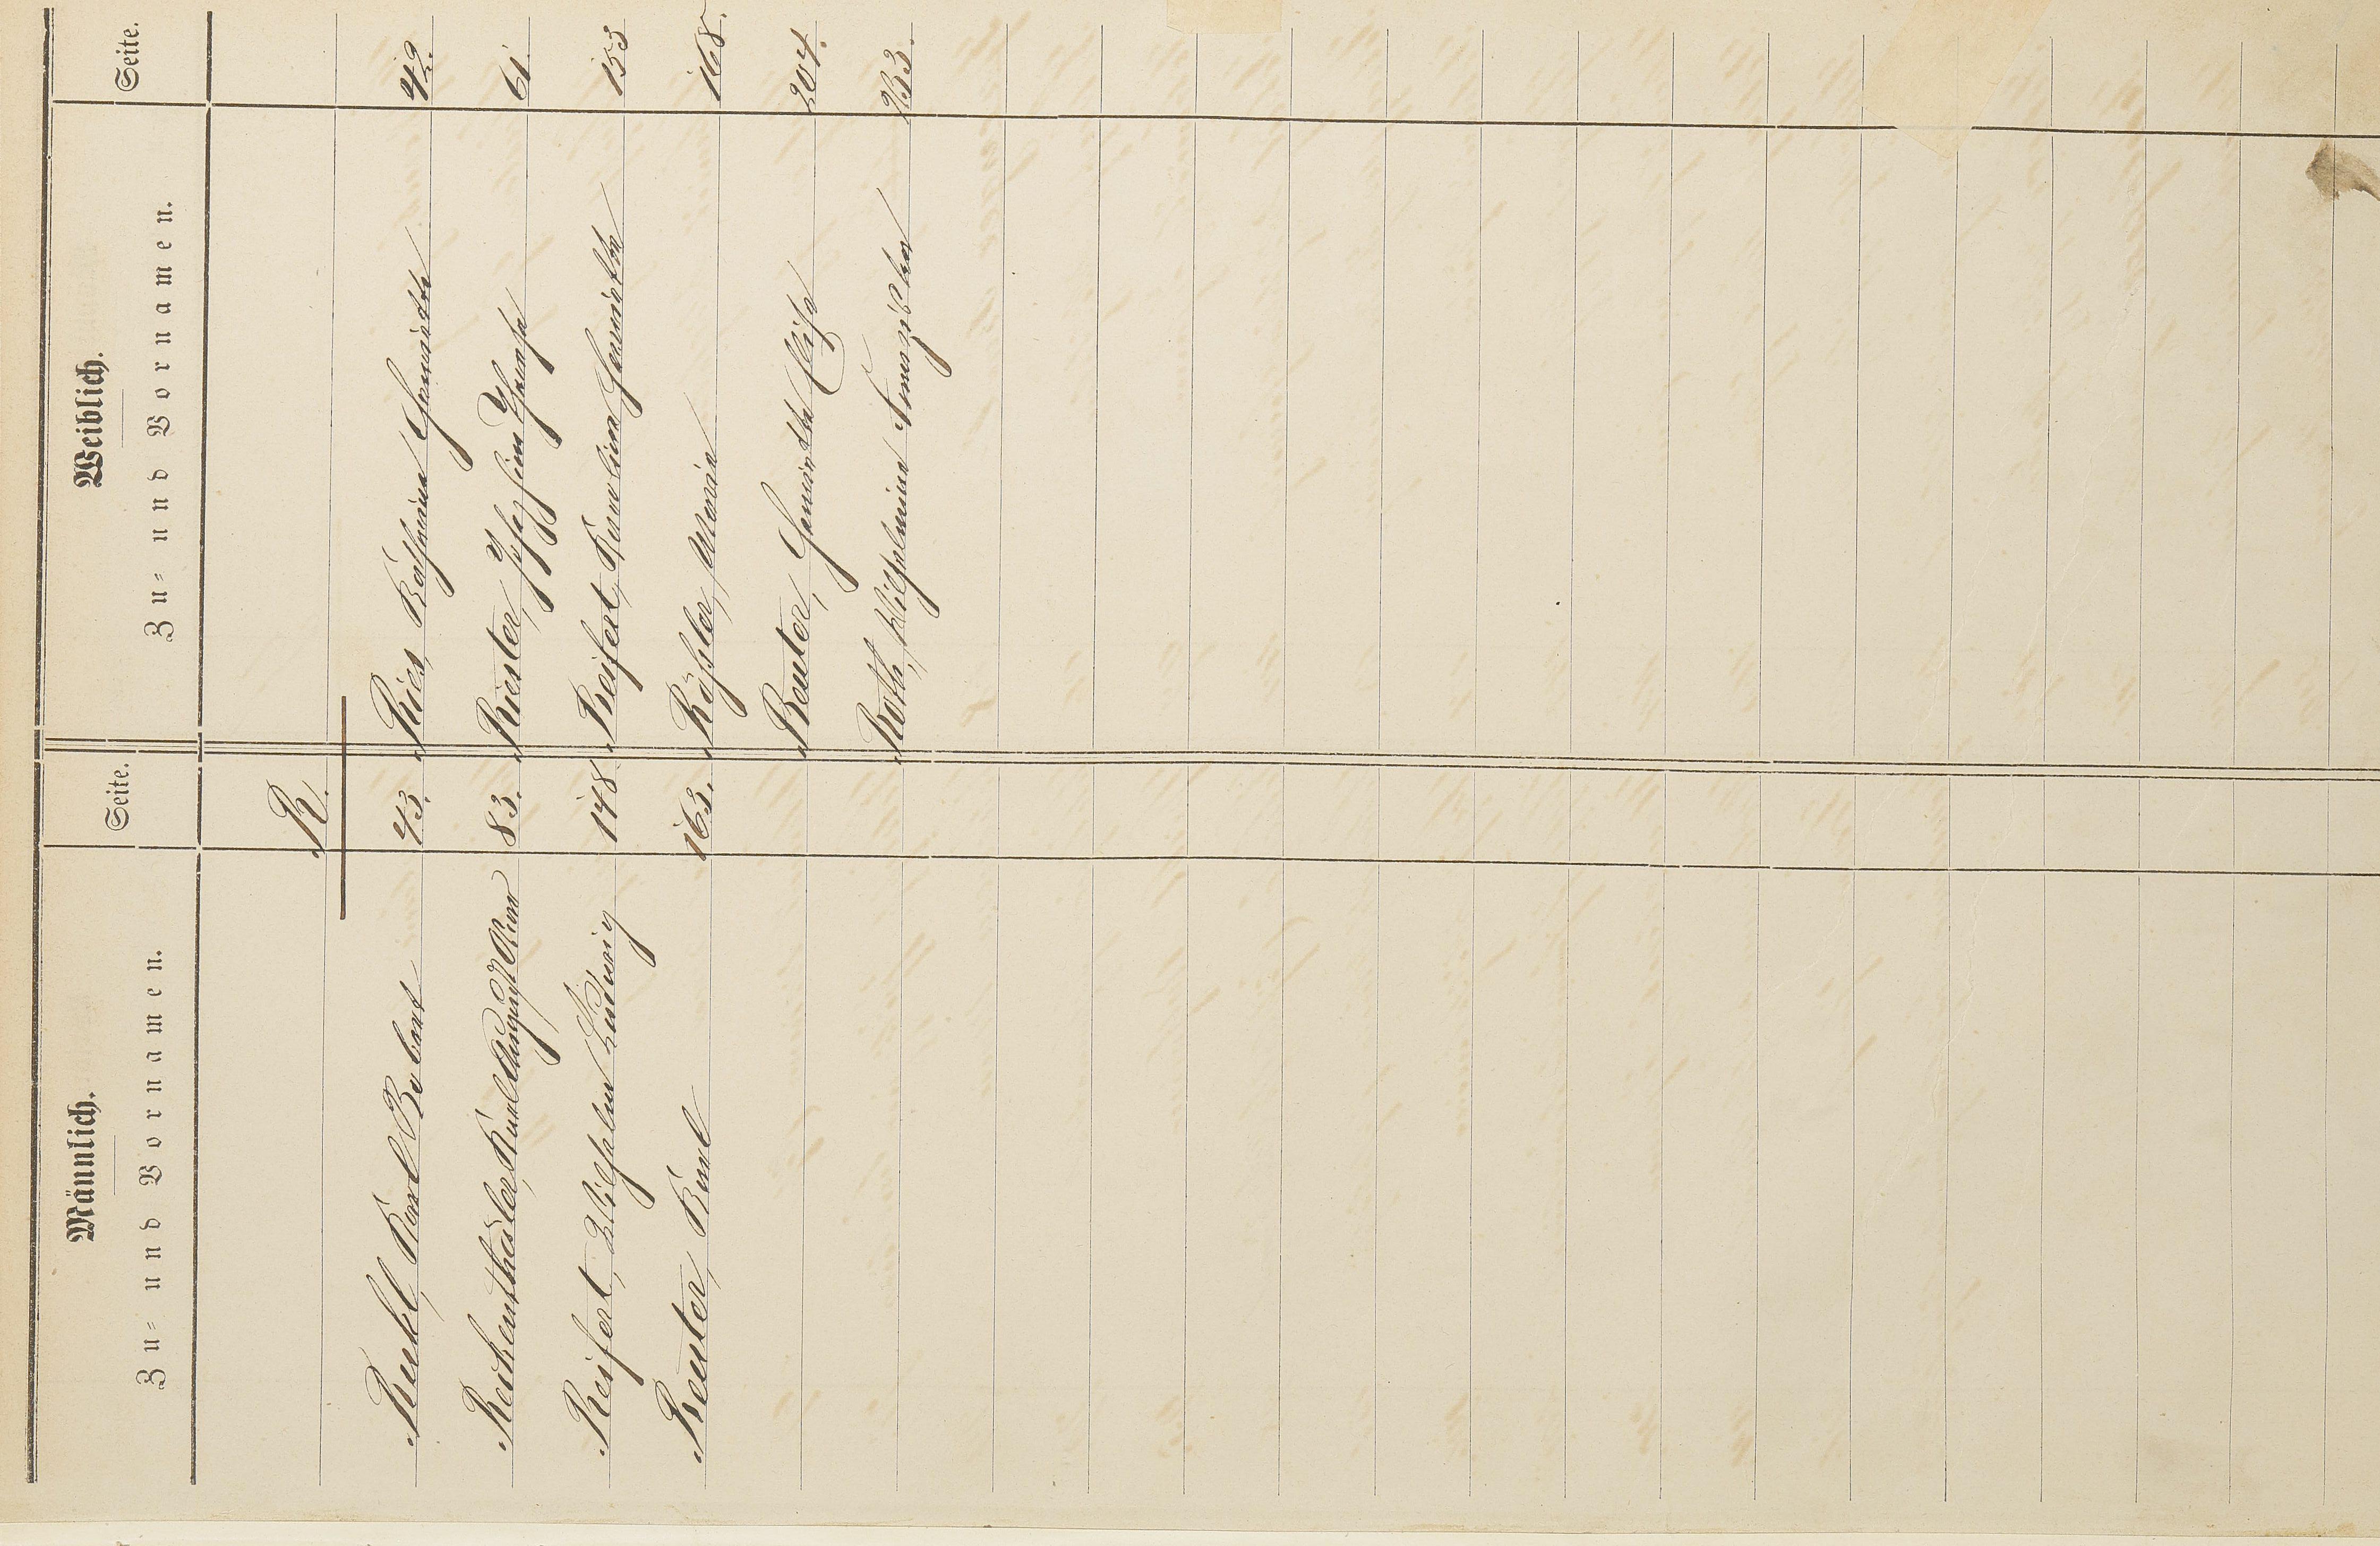 Männlich. Weiblich.
Zu- und Vornamen. Seite. Zu- und Vornamen. Seite.
R.
Ruckl, Karl Robert 43. Ries, Katharina Henriette 49.
Reichenthäler, Karl August 83. Riester, Josefine Theresa 61.
Reifert, Wilhelm Ludwig 148 Reifert, Karolina Henriette 153
Reuter, Karl 163. Rößler, Maria 168.
Reuter, Henriette Elisa 204.
Roth, Wilhelmina Franziska 233.